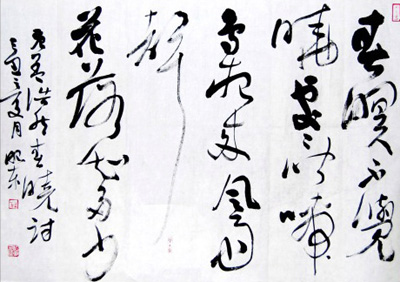 春眠不覺
曉處々聞啼
鳥夜來風雨
聲
花落知多少
孟浩然春曉詩
月